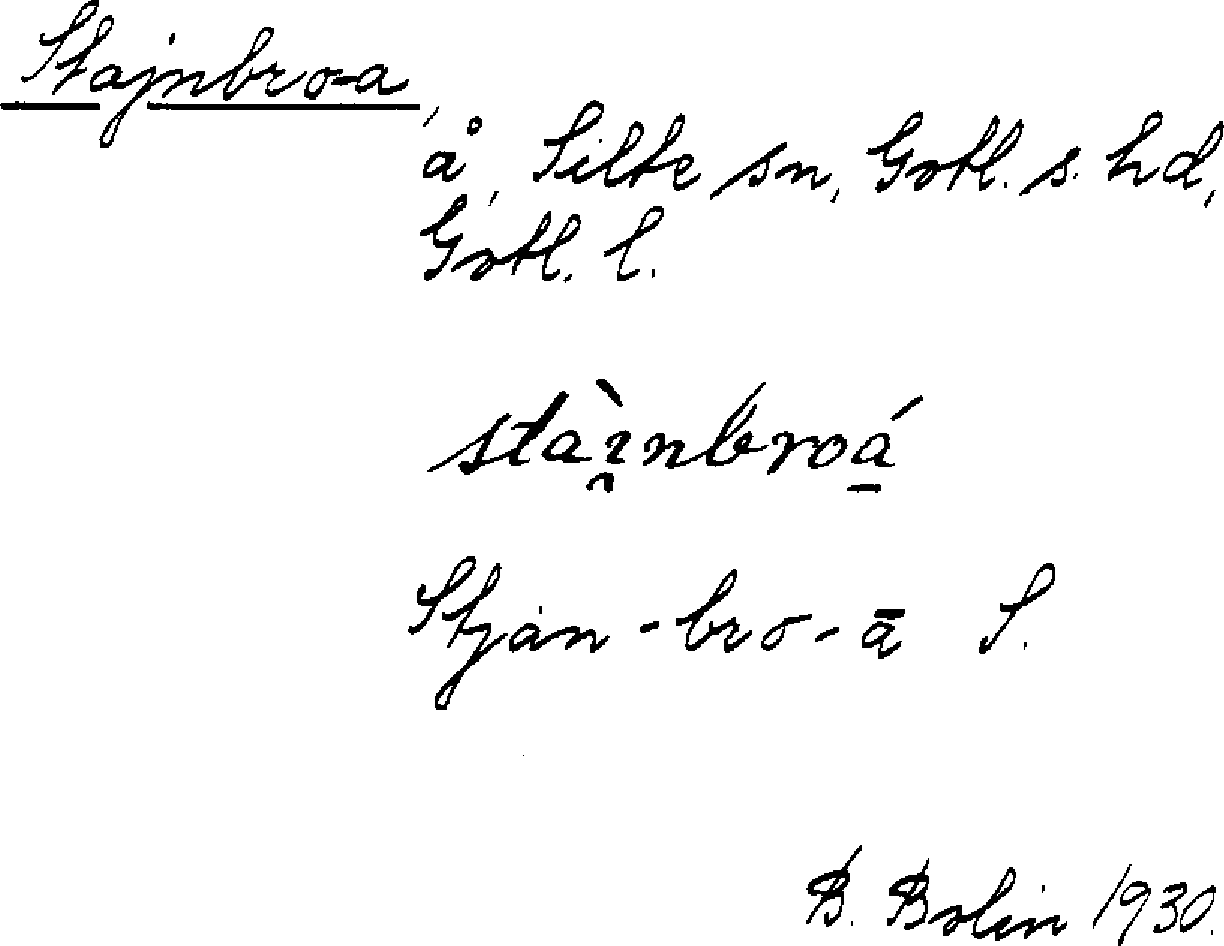 Stajnbro-a,
å, Silte sn, Gotl. s. hd,
Gotl. l.
stàı̯nbroá̱
Stjan-bro-ā S.
B. Bolin 1930.